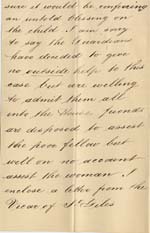 sure it would be conferring
an untold blessing on
the child I am sorry
to say the Guardians
have decided to give
no outside help to this
case but are willing
to admit them all
into the House friends
are disposed to assist
the poor fellow but
will on no account
assist the woman I
enclose a letter from the
Vicar of St Giles